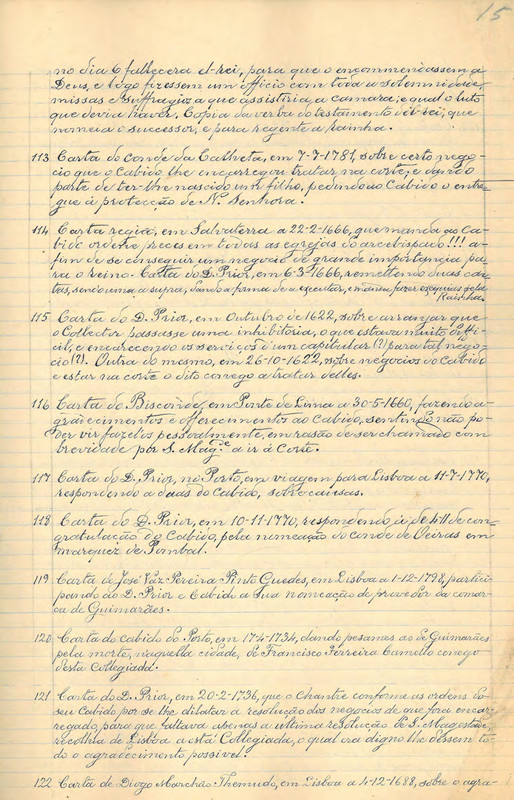 15
no dia 6 fallecera el-rei, para que o encommendassem a
Deus, e logo fizessem um officio com toda a solemnidade,
missas e suffragios a que assistiria a camara, e qual o luto
que devia haver. Copia da verba do testamento d'el-rei, que
nomeia o successor, e para regente a rainha.
113 Carta do conde da Calheta, em 7-7-1781, sobre certo nego-
cio que o Cabido lhe encarregou tratar na côrte, e dando
parte de ter-lhe nascido um filho, pedindo ao Cabido o entre-
gue á protecção de N. Senhora.
114 Carta regia, em Salvaterra a 22-2-1666, que manda ao Ca-
bido ordene preces em todas as egrejas do arcebispado!!! a-
fim de se conseguir um negocio de grande importancia pa-
ra o reino. Carta do D. Prior, em 6-3-1666, remettendo duas car-
tas, sendo uma a supra, dando a forma de a executar, e manda fazer exequias pela
Rainha.
115 Carta do D. Prior, em Outubro de 1622, sobre arranjar que
o Collector passasse uma inhibitoria, o que estava muito diffi-
cil, e encarecendo os serviços d'um capitular (?) para tal nego-
cio (?). Outra do mesmo, em 26-10-1622, sobre negocios do Cabido
e estar na corte o dito conego a tratar delles.
116 Carta do Bisconde, em Ponte de Lima a 30-5-1660, fazendo a-
gradecimentos e offerecimentos ao Cabido, sentindo não po-
der vir fazel-os pessoalmente, em rasão de ser chamado com
brevidade por S. Mag.e a ir á Corte.
117 Carta do D. Prior, no Porto, em viagem para Lisboa a 11-7-1770,
respondendo a duas do Cabido, sobre causas.
118 Carta do D. Prior, em 10-11-1770, respondendo, á de 4-11 de con-
gratulação do Cabido, pela nomeação do conde de Oeiras em
marquez de Pombal.
119 Carta de José Vaz Pereira Pinto Guedes, em Lisboa a 1-12-1798, partici-
pando ao D. Prior e Cabido a sua nomeação de provedor da comar-
ca de Guimarães.
120 Carta do cabido do Porto, em 17-4-1734, dando pesames ao de Guimarães
pela morte, naquella cidade, de Francisco Ferreira Camello conego
desta Collegiada.
121 Carta do D. Prior, em 20-2-1736, que o Chantre conforme as ordens do
seu Cabido por se lhe dilatar a resolução dos negocios de que fora encar-
regado, para que faltava apenas a ultima resolução de S. Magestade,
recolhia de Lisboa a esta Collegiada, o qual era digno lhe dessem to-
do o agradecimento possivel.
122 Carta de Diogo Marchão Themudo, em Lisboa a 4-12-1688, sobre o agra-